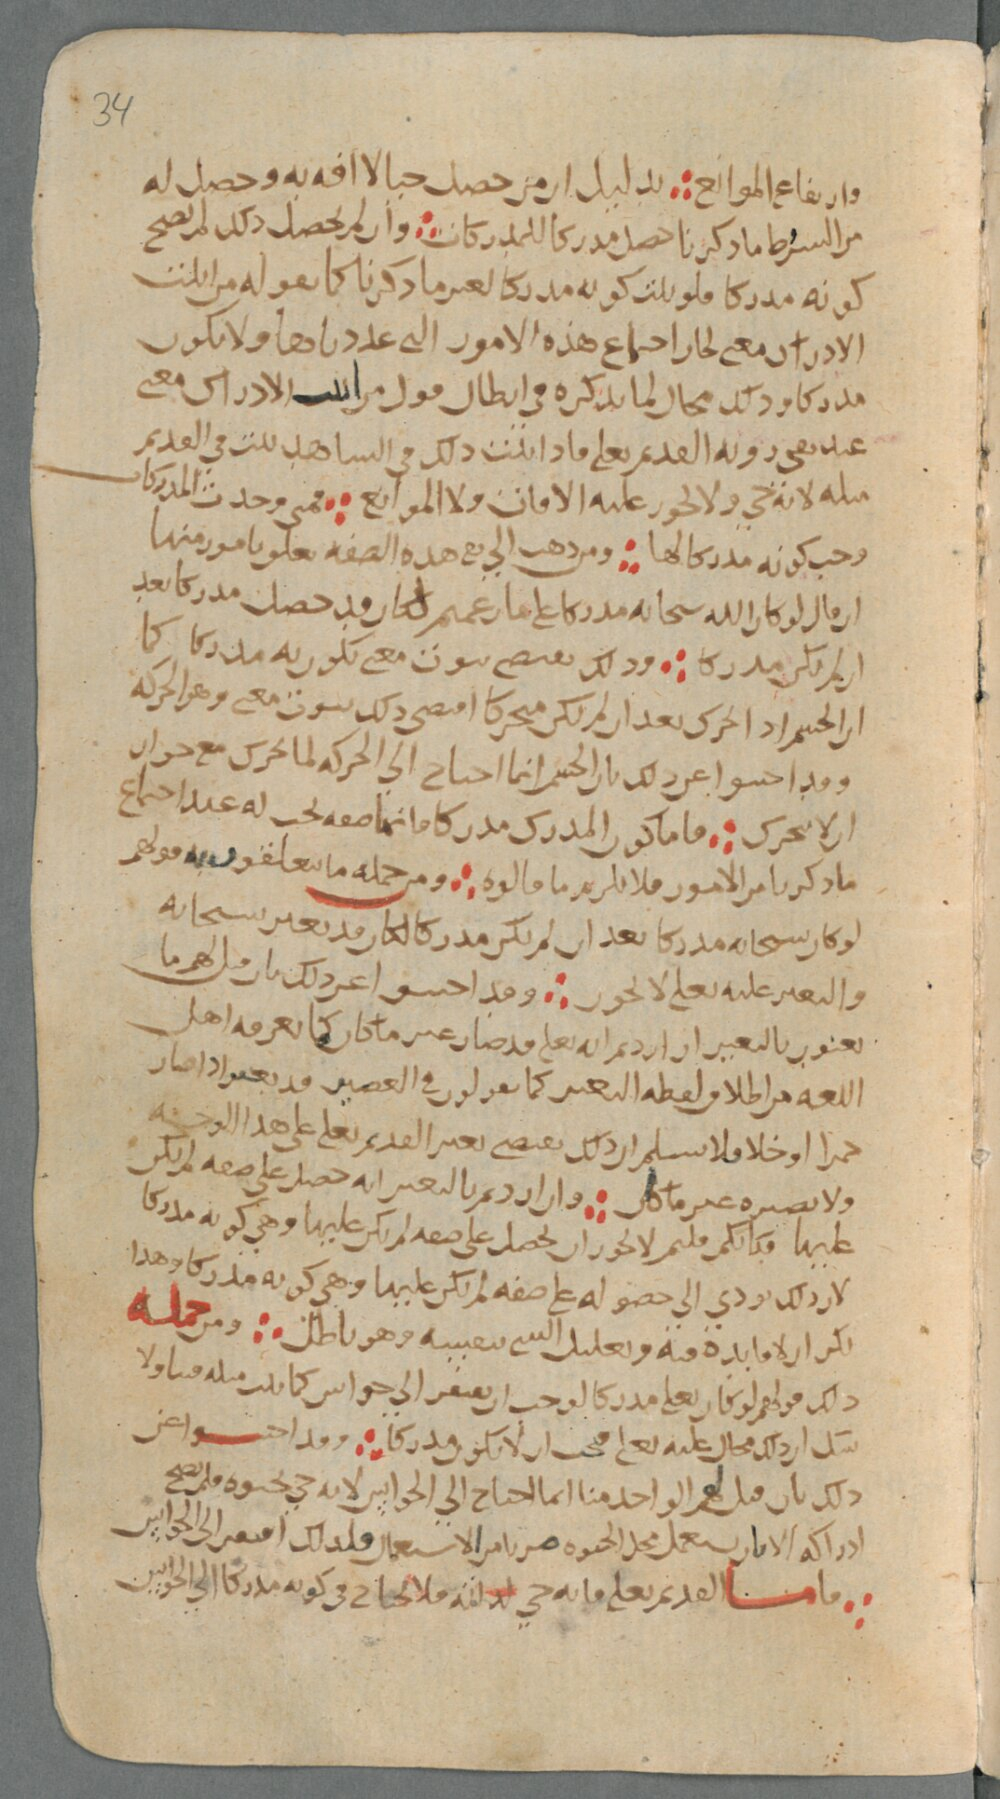 34
وارتفاع الموانع ؞ بدليل ان من حصل حيا لا افة به وحصل له
من الشرط ما ذكرنا حصل مدركا للمدركات ؞ وان لم يحصل ذلك لم يصح
كونه مدركا فلو ثبت كونه مدركا لغير ما ذكرنا كما يقوله من اثبت
الادراك معنى لجاز اجتماع هذه الامور التي عددناها ولا يكون
مدركا وذلك محال لما نذكره في ابطال قول من اثبت الادراك معنى
عند نفي رويه القديم تعلى فاذا ثبت ذلك في الشاهد ثبت في القديم
مثله لانه حي ولا يجوز عليه الافات ولا الموانع ؞ فمتى وجدت المدركات
وجب كونه مدركا لها ؞ ومن ذهب الى نفي هذه الصفه تعلق بامور منها
ان قال لو كان الله سبحانه مدركا على ما زعمتم لكان قد حصل مدركا بعد
ان لم يكن مدركا ؞ وذلك يقتضي ثبوت معنى يكون به مدركا كما
ان الجسم اذا تحرك بعد ان لم يكن متحركا اقتضى ذلك ثبوت معنى وهو الحركه
وقد اجيبوا عن ذلك بان الجسم انما احتاج الى الحركه لما تحرك مع جواز
ان لا يتحرك ؞ فاما كون المدرك مدركا فانها صفه تجب له عند اجتماع
ما ذكرنا من الامور فلا يلزم ما قالوه ؞ ومن جمله ما يتعلقون به قولهم
لو كان سبحانه مدركا بعد ان لم يكن مدركا لكان قد تغير سبحانه
والتغير عليه تعلى لا يجوز ؞ وقد اجيبوا عن ذلك بان قيل لهم ما
تعنون بالتغيير ان اردتم انه تعلى قد صار غير ما كان كما يعرفه اهل
اللغه من اطلاق لفظه التغير كما يقولون في العصير قد تغير اذا صار
خمرا او خلا فلا نسلم ان ذلك يقتضي تغير القديم تعلى على هذا الوجه
ولا يصيره غير ما كان ؞ وان اردتم بالتغير انه حصل على صفه لم يكن
عليها فكانكم قلتم لا يجوز ان يحصل على صفه لم يكن عليها وهي كونه مدركا
لان ذلك يودي الى حصوله على صفه لم يكن عليها وهي كونه مدركا وهذا
تكرار لا فايدة فيه وتعليل الشي بنفسه وهو باطل ؞ ومن جملة
ذلك قولهم لو كان تعلى مدركا لوجب ان يفتقر الى حواس كما ثبت مثله فينا ولا
شك ان ذلك محال عليه تعلى فيجب ان لا يكون مدركا ؞ وقد اجيبوا عن
ذلك بان قيل لهم الواحد منا انما احتاج الى الحواس لانه حي بحيوه فلم يصح
ادراكه الا بان يستعمل محل الحيوه ضربا من الاستعمال فلذلك افتقر الى الحواس
؞ فاما القديم تعلى فانه حي لذاته فلا يحتاج في كونه مدركا الى الحواس